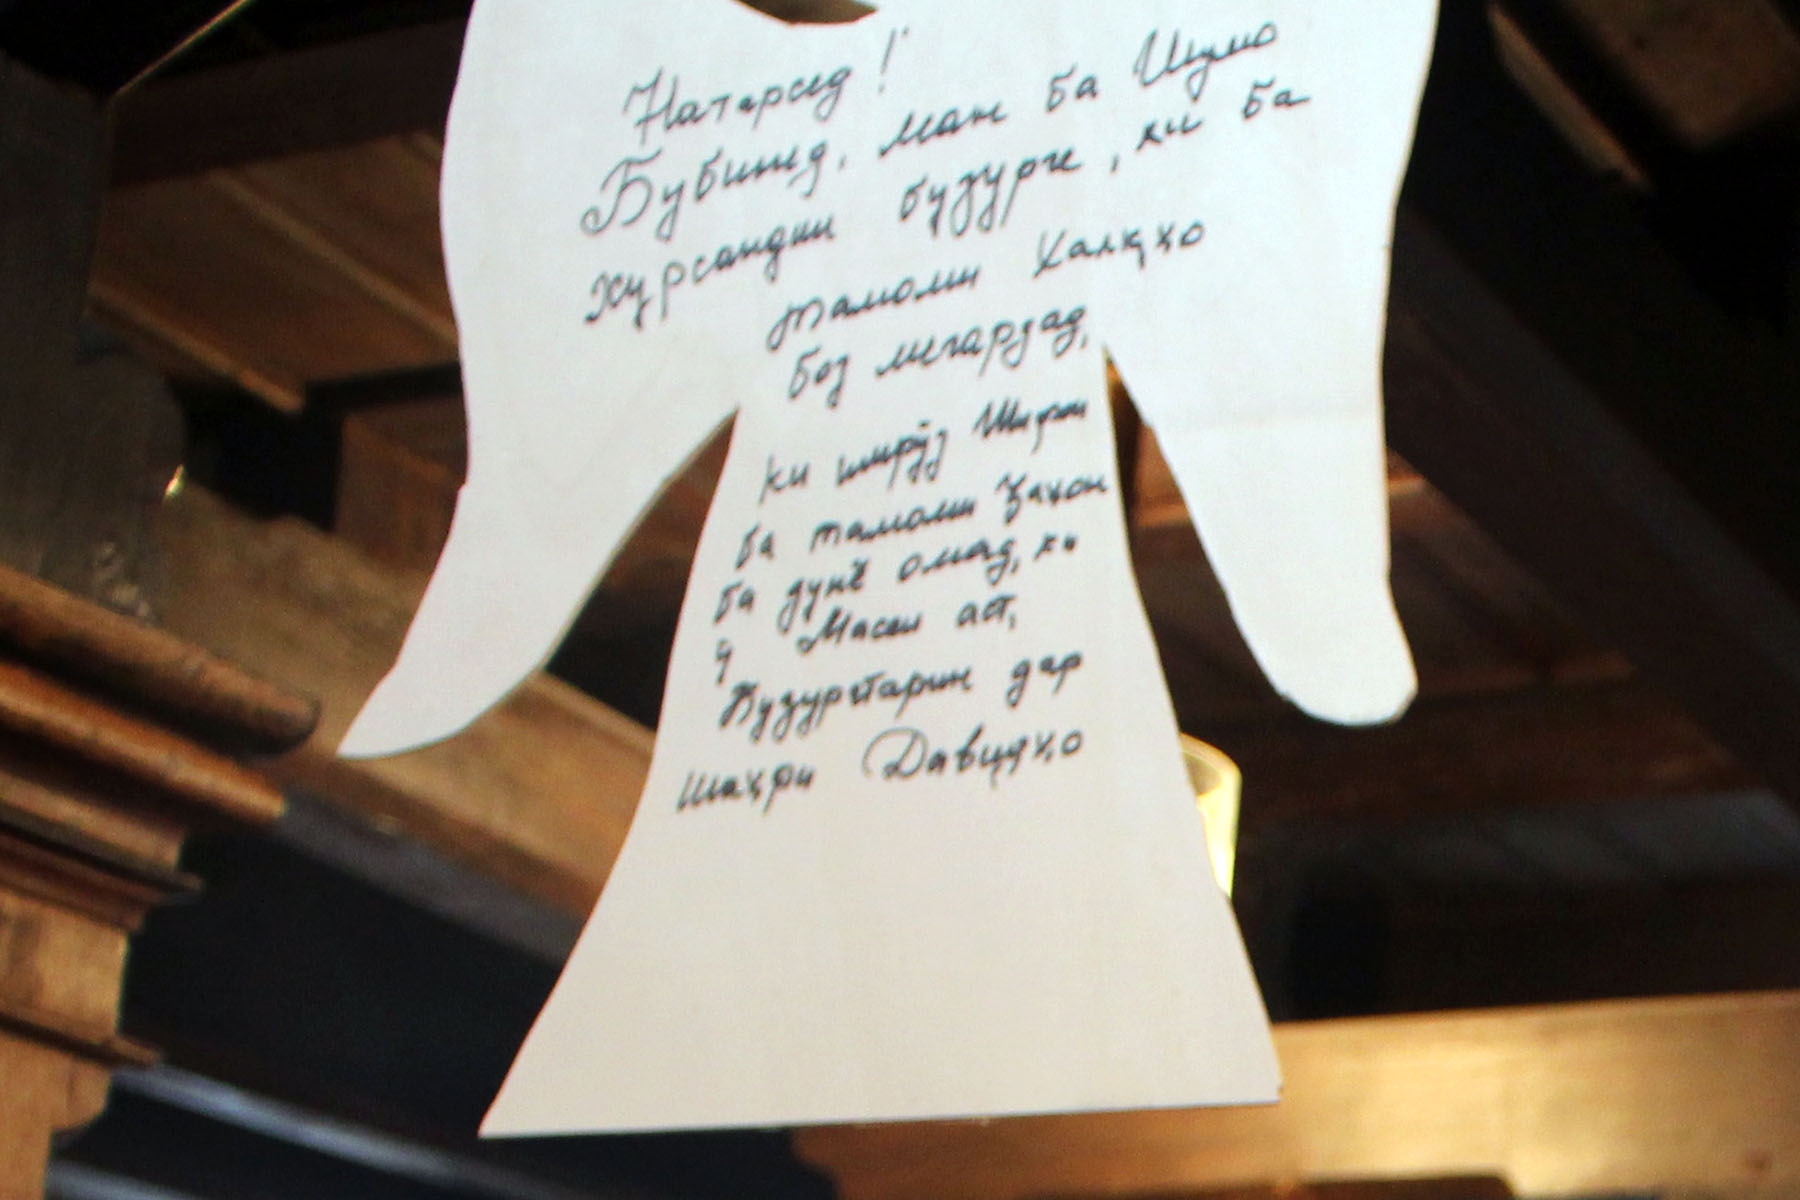 Натарсед!
Бубинед, ман ба Шумо
хурсандии бузурге, ки ба
тамоми Халқҳо
боз мегардад,
ки имрӯз Ширин
ба тамоми Ҷаҳон
ба дунё омад, ки
ӯ Масеҳ аст,
Бузургтарин дар
шаҳри Давидҳо